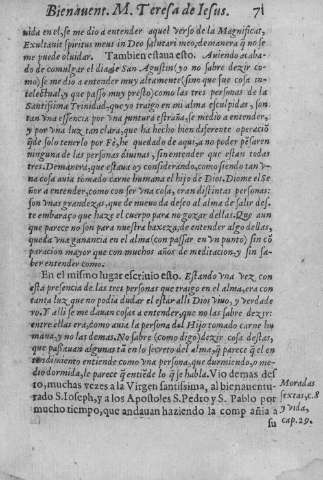 Bienauent. M. Teresa de Iesus. 71
uida en el, se me dio a entender aquel verso de la Magnificat,
Exultauit spiritus meus in Deo salutari meo, de manera q̃ no se
me puede oluidar. Tambien estaua esto. Auiendo acaba-
do de comulgar el dia de San Agustin (yo no sabre dezir co-
mo) se me dio a entender muy altamente (sino que fue cosa in-
telectual, y que passo muy presto) como las tres personas de la
Santissima Trinidad, que yo traigo en mi alma esculpidas, son
tan vna essencia por vna pintura estraña, se medio a entender,
y por vna luz tan clara, que ha hecho bien diferente operaciõ
q̃ de solo tenerlo por Fè, he quedado de aqui, a no poder pẽsar en
ninguna de las personas diuinas, sin entender que estan todas
tres. De manera, que estaua oy considerando, como siendo tan v-
na cosa auia tomado carne humana el hijo de Dios. Diome el Se
ñor a entender, como con ser vna cosa, eran distintas personas:
son vnas grandezas, que de nueuo da deseo al alma de salir des-
te embaraço que haze el cuerpo para no gozar dellas. Que aun
que parece no son para nuestra baxeza, de entender algo dellas,
queda vna ganancia en el alma (con passar en vn punto) sin cõ
paracion mayor que con muchos años de meditacion, y sin sa-
ber entender como.
En el mismo lugar escriuio esto. Estando vna vez con
esta presencia de las tres personas que traigo en el alma, era con
tanta luz que no podia dudar el estar alli Dios viuo, y verdade
ro. Y alli se me dauan cosas a entender, que no las sabre dezir:
entre ellas era, como auia la persona del Hijo tomado carne hu
mana, y no las demas. No sabre (como digo) dezir cosa destas,
que passauan algunas tã en lo secreto del alma, q̃ parece q̃ el en
tendimiento entiende como vna persona, que durmiendo, o me-
dio dormida, le parece q̃ entiẽde lo q̃ se habla. Vio demas des
to, muchas vezes a la Virgen santissima, al bienauentu-
rado S. Ioseph, y a los Apostoles S. Pedro y S. Pablo por
mucho tiempo, que andauan haziendo la compañia a
su
Moradas
sextas, c. 8
y vida,
cap. 29.